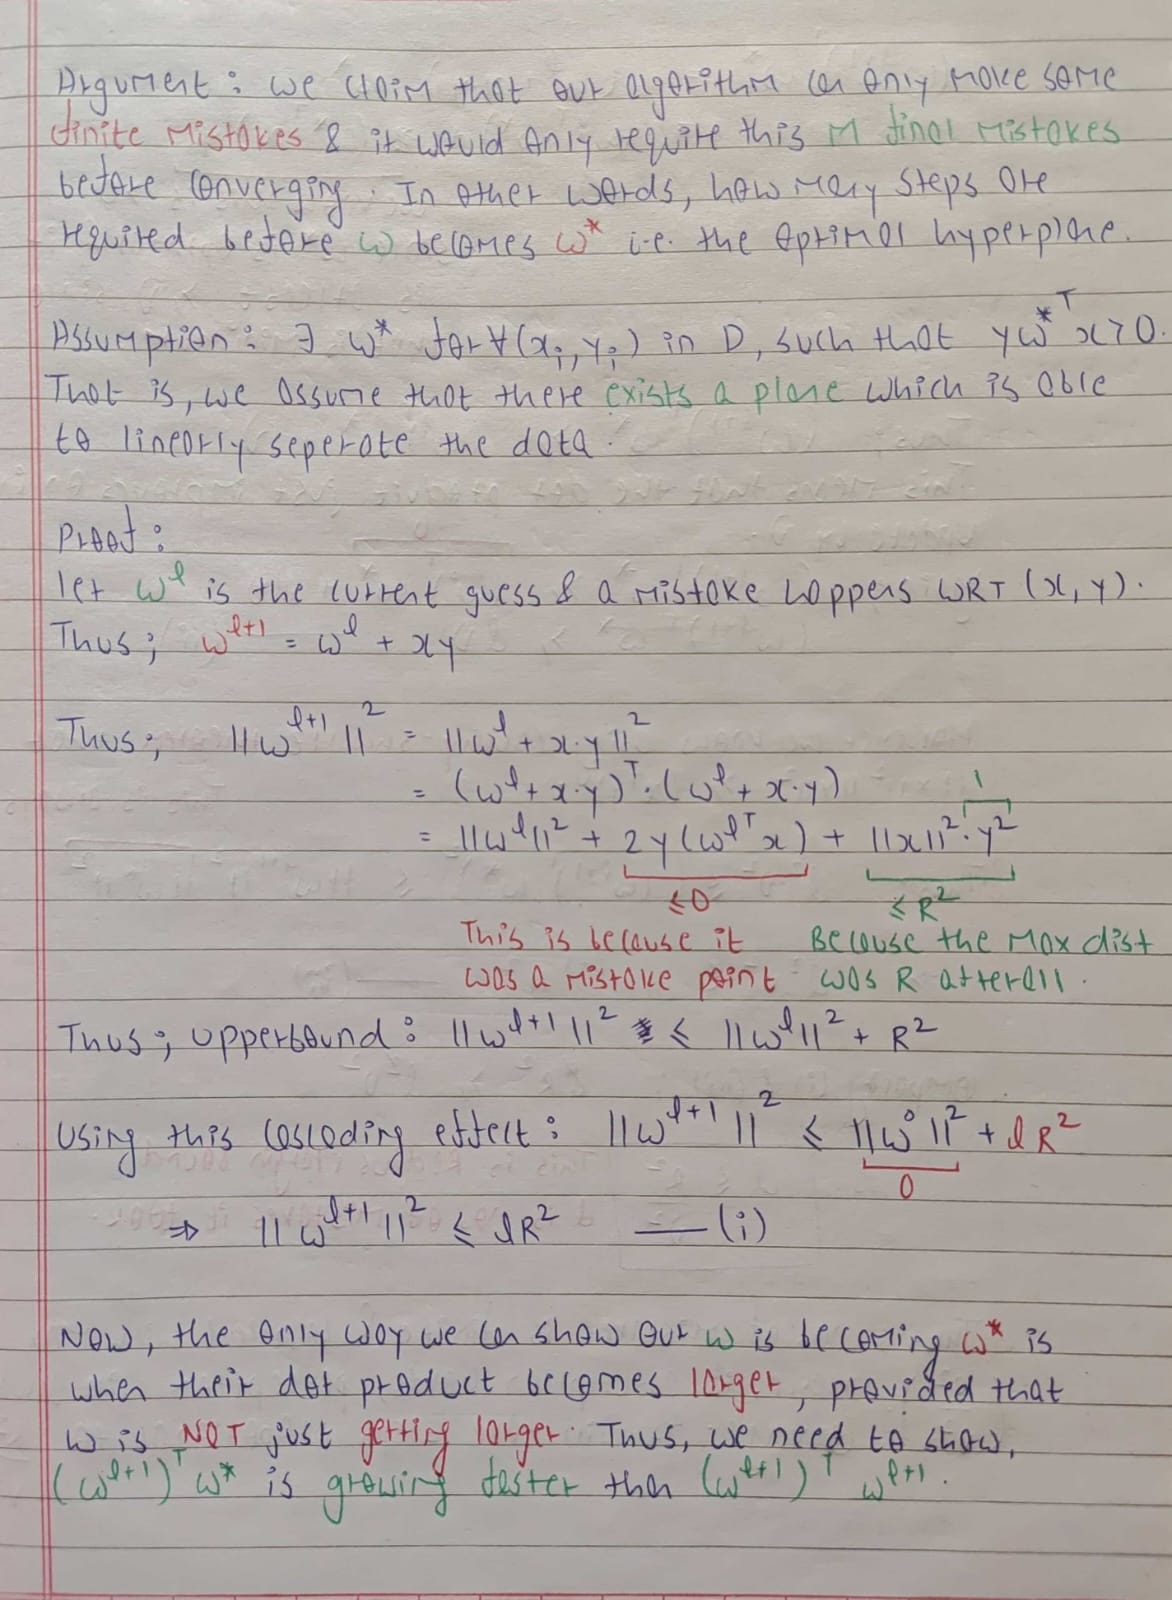 Argument: we claim that our algorithm can only make some
finite mistakes & it would only require this M final mistakes
before converging. In other words, how many steps are
required before ω becomes ω* i.e. the optimal hyperplane.
Assumption: ∃ ω* for ∀(xᵢ, yᵢ) in D, such that yω*ᵀx > 0.
That is, we assume that there exists a plane which is able
to linearly seperate the data.
Proof:
let ωˡ is the current guess & a mistake happens WRT (x, y).
Thus; ωˡ⁺¹ = ωˡ + xy
Thus; ||ωˡ⁺¹||² = ||ωˡ + x·y||²
= (ωˡ + x·y)ᵀ·(ωˡ + x·y)
1
= ||ωˡ||² + 2y(ωˡᵀx) + ||x||²·y²
≤0 ≤R²
This is because it Because the max dist
was a mistake point was R afterall.
Thus; upperbound: ||ωˡ⁺¹||² ≤ ||ωˡ||² + R²
Using this cascading effect: ||ωˡ⁺¹||² ≤ ||ω⁰||² + lR²
0
⇒ ||ωˡ⁺¹||² ≤ lR² —(i)
Now, the only way we can show our ω is becoming ω* is
when their dot product becomes larger, provided that
ω is NOT just getting larger. Thus, we need to show,
(ωˡ⁺¹)ᵀ ω* is growing faster than (ωˡ⁺¹)ᵀ ωˡ⁺¹.